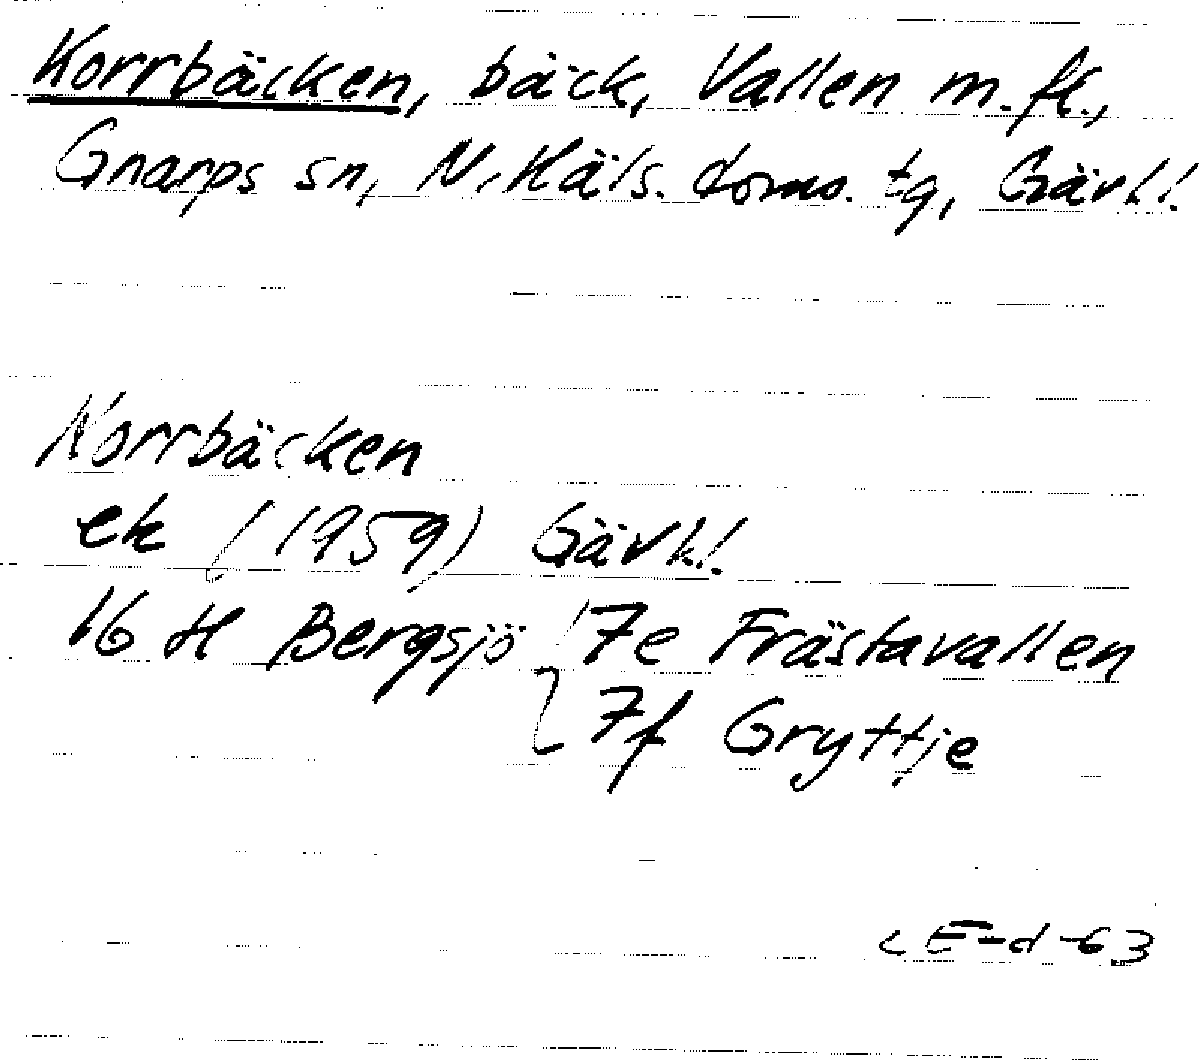 Korrbäcken, bäck, Vallen m.fl.,
Gnarps sn, N. Häls. doms. tg, Gävl.l.
Korrbäcken
ek (1959) Gävl.l.
16 H Bergsjö 7e Frästavallen
7f Gryttje
CE-d-63